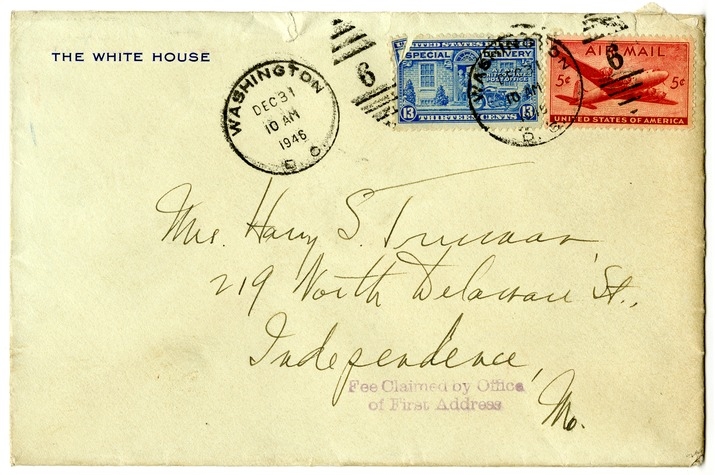 THE WHITE HOUSE
WASHINGTON
DEC 31
10 AM
1946
D. C.
6
UNITED STATES POSTAGE
SPECIAL DELIVERY
UNITED STATES
POST OFFICE
13 THIRTEEN CENTS 13
WASHINGTON
10 AM
D. C.
6
AIR MAIL
5¢ 5¢
UNITED STATES OF AMERICA
Mrs. Harry S. Truman
219 North Delaware St.,
Independence,
Fee Claimed by Office
of First Address
Mo.